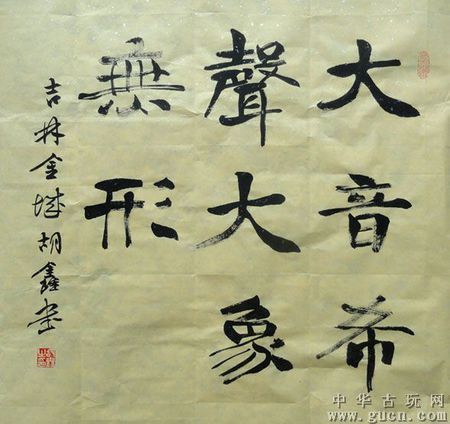 大音希
聲大象
無形
吉林金城胡鑫書
中华古玩网
www.gucn.com